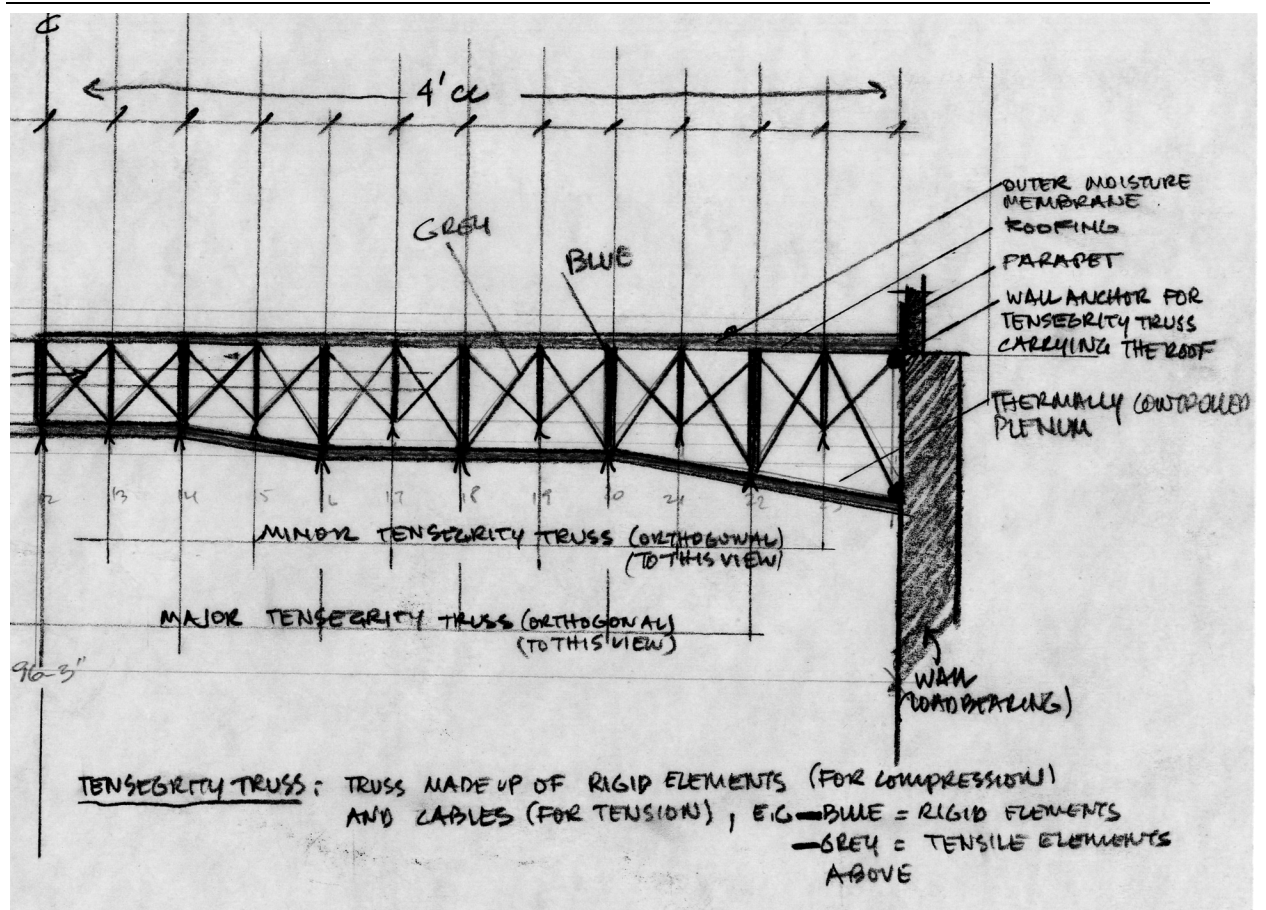 ℄
4' cc
OUTER MOISTURE
MEMBRANE
ROOFING
PARAPET
WALL ANCHOR FOR
TENSEGRITY TRUSS
CARRYING THE ROOF
THERMALLY CONTROLLED
PLENUM
GREY
BLUE
12 13 14 15 16 17 18 19 20 21 22 23
MINOR TENSEGRITY TRUSS (ORTHOGONAL)
(TO THIS VIEW)
MAJOR TENSEGRITY TRUSS (ORTHOGONAL)
(TO THIS VIEW)
96-3"
WALL
(LOADBEARING)
TENSEGRITY TRUSS: TRUSS MADE UP OF RIGID ELEMENTS (FOR COMPRESSION)
AND CABLES (FOR TENSION), E.G. — BLUE = RIGID ELEMENTS
— GREY = TENSILE ELEMENTS
ABOVE